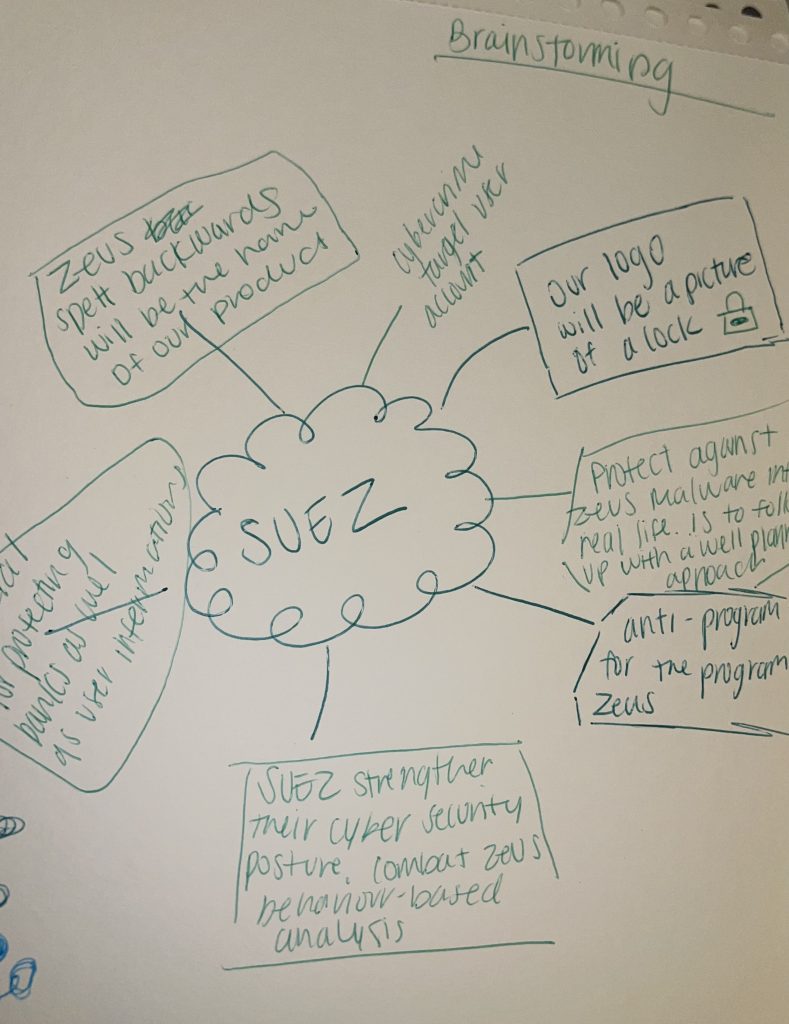 Brainstorming
Zeus
spelt backwards
will be the name
of our product
cybercrime
target user
account
our logo
will be a picture
of a lock
SUEZ
Protect against
Zeus malware
real life. is to
up with a well
approach
anti-program
for the program
Zeus
for protecting
banks as well
as user information
SUEZ strengthen
their cyber security
posture. combat Zeus
behaviour-based
analysis